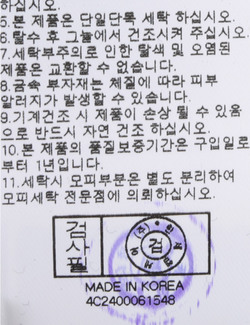 하십시오.
5.본 제품은 단일단독 세탁 하십시오.
6.탈수 후 그늘에서 건조시켜 주십시오.
7.세탁부주의로 인한 탈색 및 오염된
제품은 교환할 수 없습니다.
8.금속 부자재는 체질에 따라 피부
알러지가 발생할 수 있습니다.
9.기계건조 시 제품이 손상 될 수 있음
으로 반드시 자연 건조 하십시오.
10.본 제품의 품질보증기간은 구입일로
부터 1년입니다.
11.세탁시 모피부분은 별도 분리하여
모피세탁 전문점에 의뢰하십시오.
검사필
검
MADE IN KOREA
4C2400061548